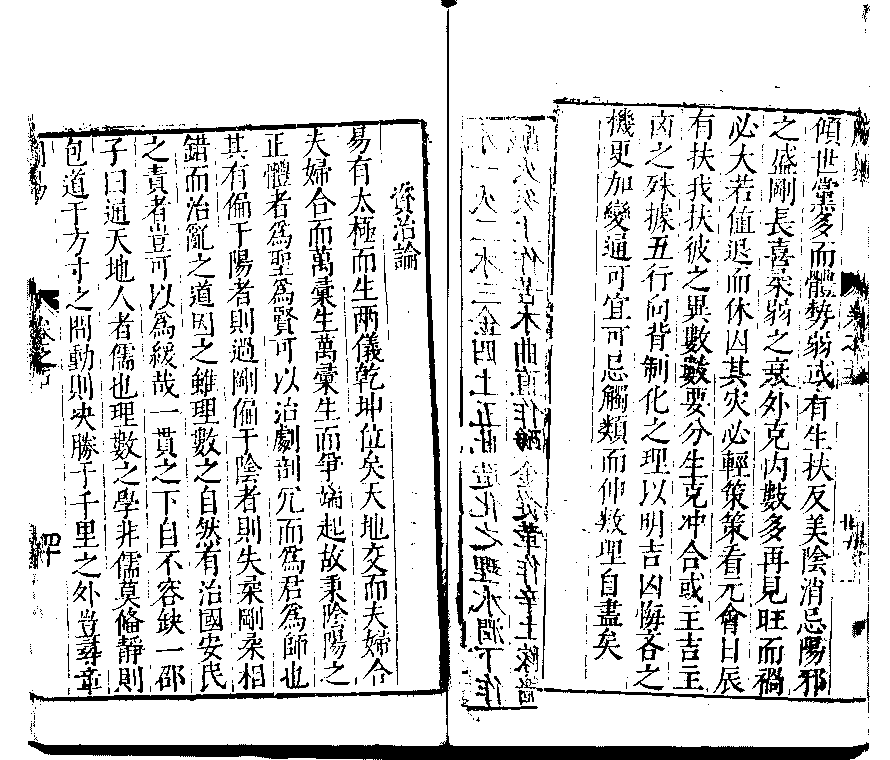 傾世黨多而體勢弱或有生扶反美陰消忌陽邪
之盛剛長喜柔弱之衰外克内數多再見旺而禍
必大若值退而休囚其灾必輕策策看元會日辰
有扶我扶彼之異數數要分生克冲合或主吉主
凶之殊據五行向背制化之理以明吉凶悔吝之
機更加變通可宜可忌觸類而伸數理自盡矣
水一火二木三金四土五此造化之理水潤下作
資治論
易有太極而生兩儀乾坤位矣天地交而夫婦合
夫婦合而萬彙生萬彙生而爭端起故秉陰陽之
正體者爲聖爲賢可以治劇剖冗而爲君爲師也
其有偏于陽者則過剛偏于陰者則失柔剛柔相
錯而治亂之道因之雖理數之自然有治國安民
之責者豈可以爲緩哉一貫之下自不容缺一邵
子曰通天地人者儒也理數之學非儒莫偹靜則
包道于方寸之間動則决勝于千里之外豈尋章
卷之
四十